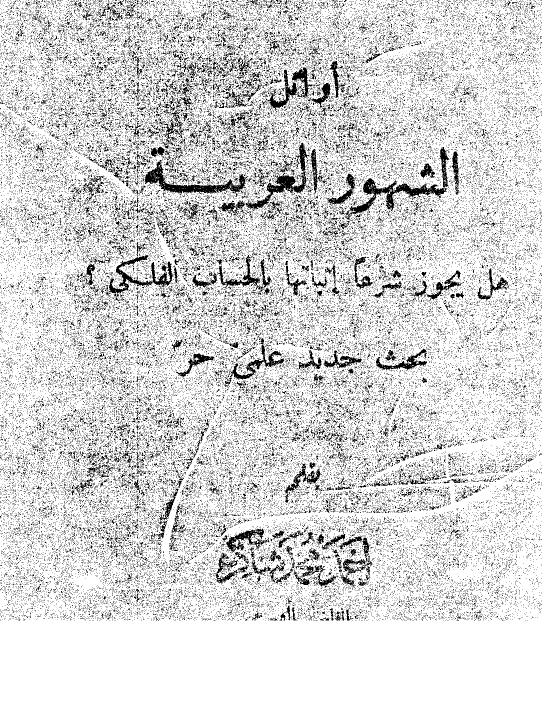 أوائل
الشهور العربيـــة
هل يجوز شرعًا إثباتها بالحساب الفلكي ؟
بحث جديد علميّ حرّ
بقلم
أحمد محمد شاكر